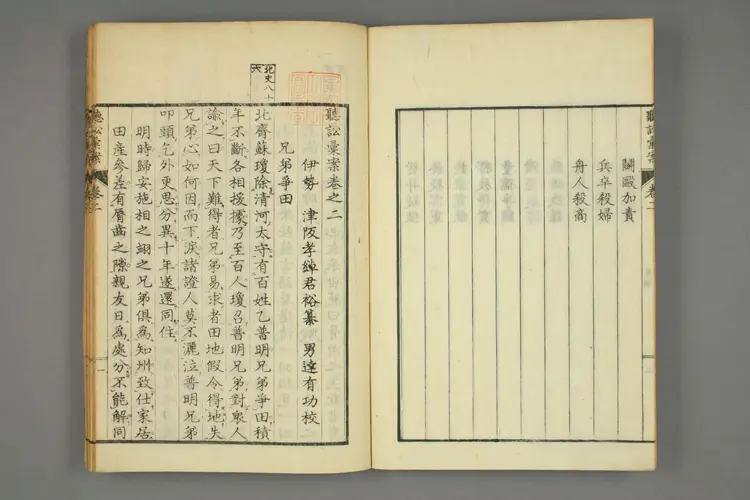 鬬毆加責
兵卒殺婦
舟人殺商
聽訟彙案
卷二
北史八十
六
聽訟彙案卷之二
伊勢 津阪孝綽君裕纂 男達有功校
兄弟爭田
北齊蘇瓊除清河太守有百姓乙普明兄弟爭田積
年不斷各相援據乃至百人瓊召普明兄弟對衆人
諭之曰天下難得者兄弟易求者田地假令得地失
兄弟心如何因而下淚諸證人莫不灑泣普明兄弟
叩頭乞外更思分異十年遂還同住
明時歸安施相之翊之兄弟俱爲知州致仕家居
田産參差有脣齒之隙親友日爲處分不能解同
聽訟彙案
卷二
一